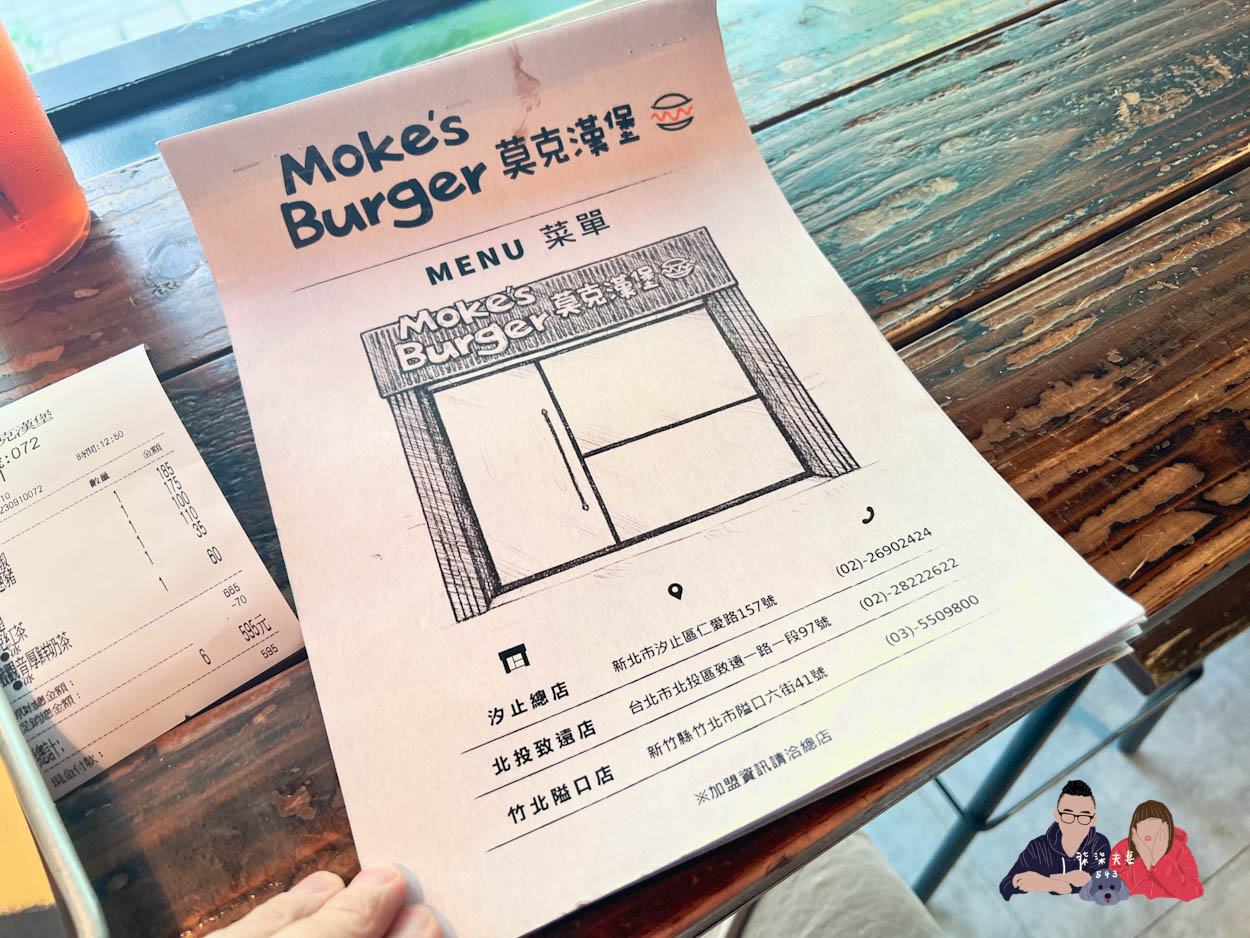 Moke's
Burger 莫克漢堡
MENU 菜單
Moke's
Burger 莫克漢堡
汐止總店 新北市汐止區仁愛路157號 (02)-26902424
北投致遠店 台北市北投區致遠一路一段97號 (02)-28222622
竹北隘口店 新竹縣竹北市隘口六街41號 (03)-5509800
※加盟資訊請洽總店
克漢堡
:072
時間:12:50
230910072
數量 金額
1 185
1 175
1 100
1 110
1 35
紅茶
冰
1 60
觀音厚鮮奶茶
冰
665
-70
總計: 6 595元
現金付款: 595
柒柒夫妻
543